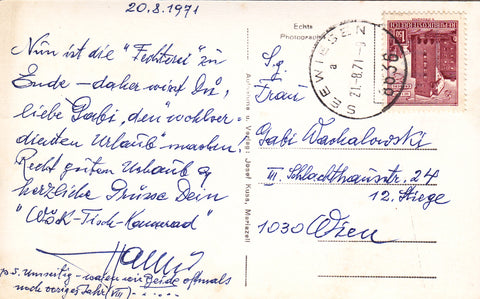 20.8.1971
Nun ist die "Fechterei" zu
Ende – daher wirst Du,
liebe Gabi, den wohlver-
dienten Urlaub machen.
Recht guten Urlaub &
herzliche Grüsse Dein
"WÖK-Tisch-Kamerad"
P.S. Umseitig – waren wir Beide oftmals
noch voriges Jahr (VIII)
Echte
Photographie
Aufnahme u. Verlag: Josef Kuss, Mariazell
SEEWIESEN
a
21.-8.71
8636
REPUBLIK ÖSTERREICH
S.g.
Frau
Gabi Wachalowski
III. Schlachthausstr. 24
12. Stiege
1030 Wien